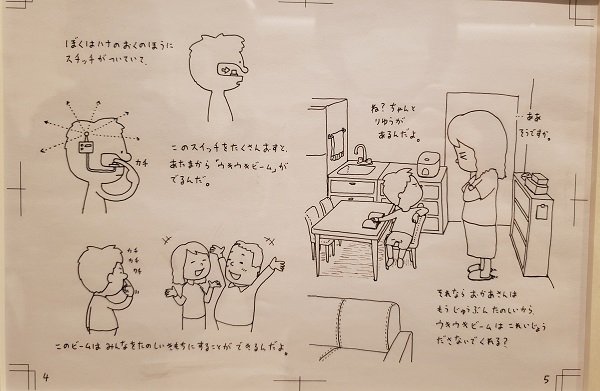 ぼくはハナのおくのほうに
スイッチがついていて、
カチ
このスイッチをたくさんおすと、
あたまから「ウキウキビーム」が
でるんだ。
カチ
カチ
カチ
このビームは みんなをたのしいきもちにすることが できるんだよ。
4
ね？ちゃんと
りゆうが
あるんだよ。
…ああ
そうですか。
それなら おかあさんは
もう じゅうぶん たのしいから
ウキウキビームは これいじょう
ださないでくれる？
5